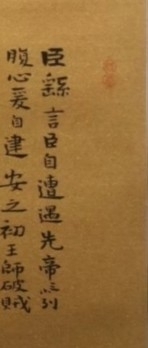 臣繇言臣自遭遇先帝以列
腹心爰自建安之初王師破賊